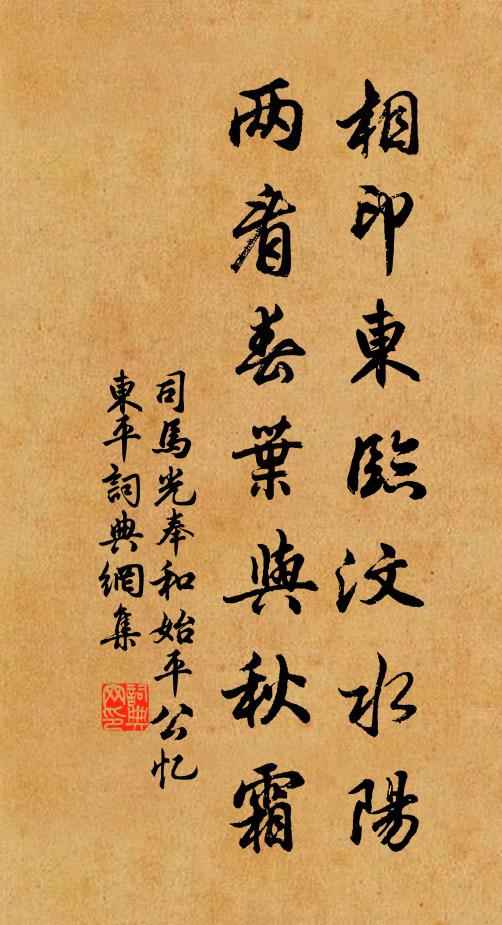 相印東臨汶水陽
两看春葉與秋霜
司馬光奉和始平公忆
東平詞典網集
詞典
网印